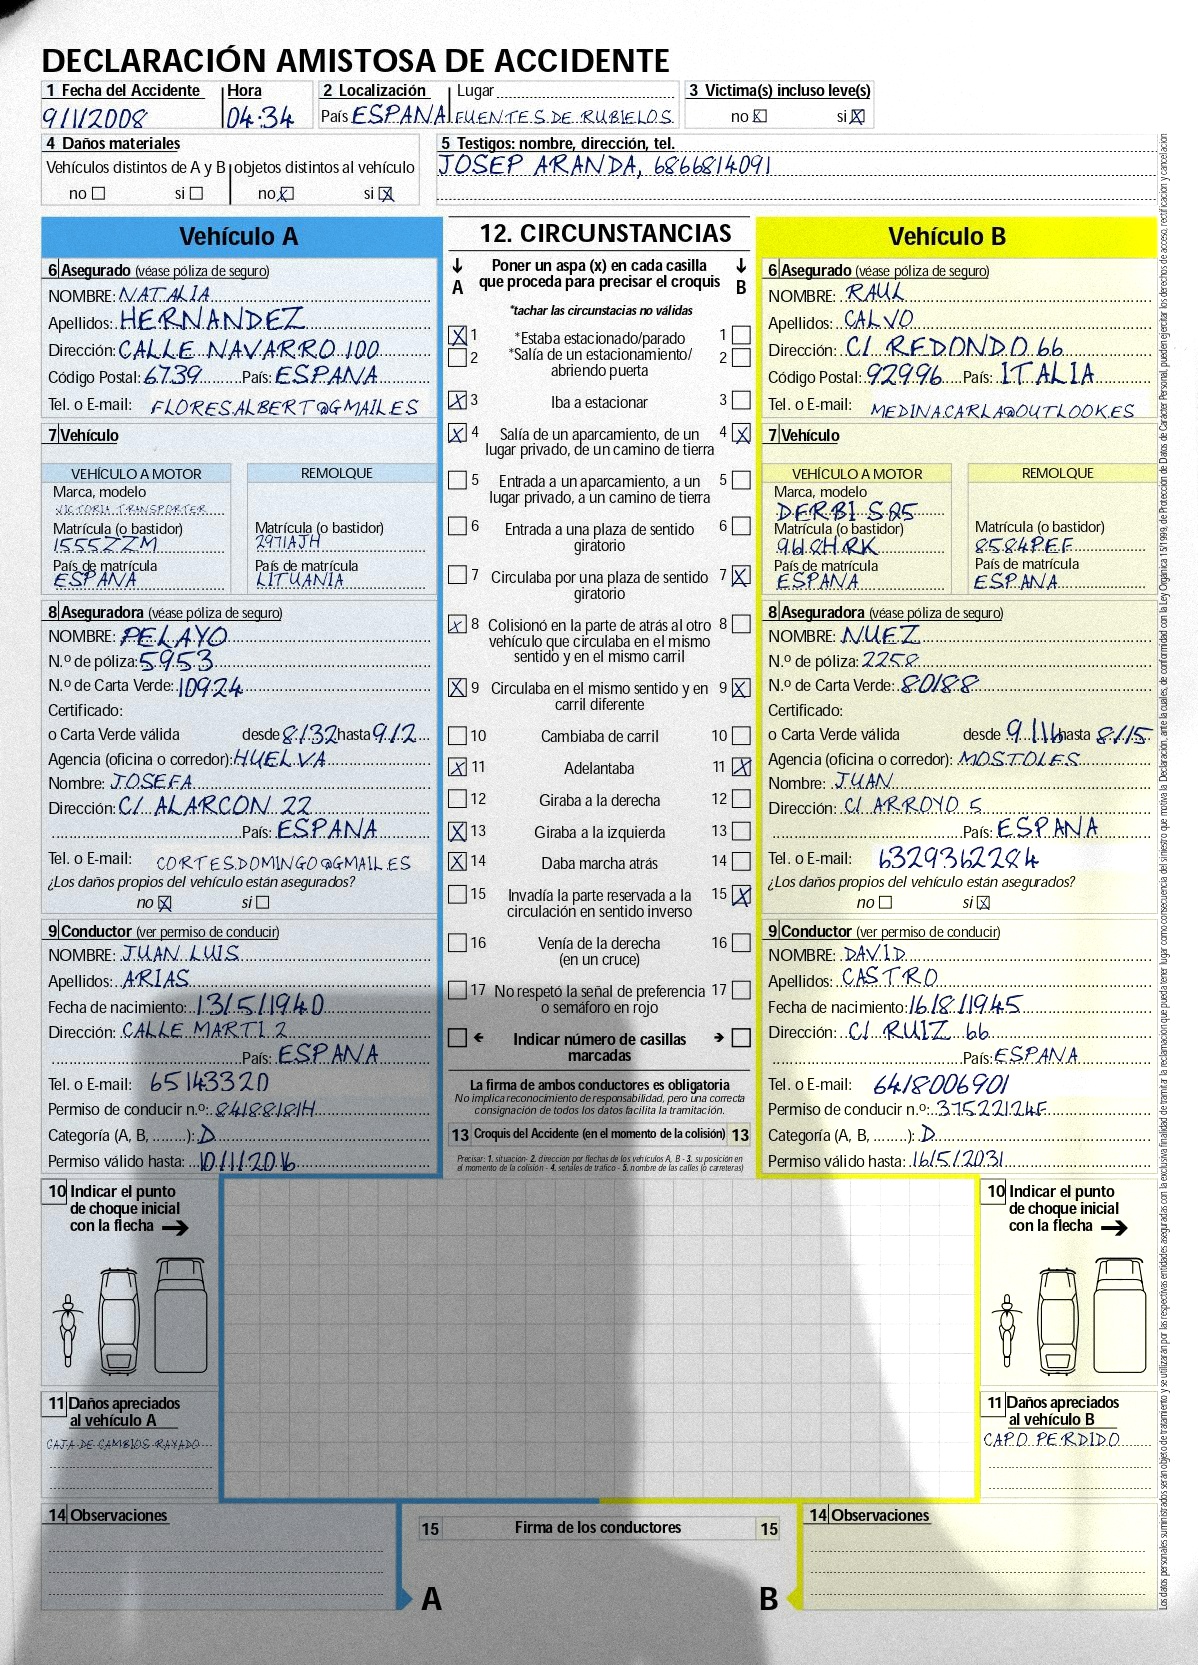 DECLARACIÓN AMISTOSA DE ACCIDENTE
1 Fecha del Accidente Hora 2 Localización Lugar 3 Victima(s) incluso leve(s)
9/1/2008 04:34 País ESPANA FUENTES DE RUBIELOS no X si X
4 Daños materiales
Vehículos distintos de A y B objetos distintos al vehículo
no si no X si X
5 Testigos: nombre, dirección, tel.
JOSEP ARANDA, 6866814091
Vehículo A
6 Asegurado (véase póliza de seguro)
NOMBRE: NATALIA
Apellidos: HERNANDEZ
Dirección: CALLE NAVARRO 100
Código Postal: 6739 País: ESPANA
Tel. o E-mail: FLORESALBERT@GMAIL.ES
7 Vehículo
VEHÍCULO A MOTOR REMOLQUE
Marca, modelo
VICTORIA TRANSPORTER
Matrícula (o bastidor) Matrícula (o bastidor)
1555ZZM 2971AJH
País de matrícula País de matrícula
ESPANA LITUANIA
8 Aseguradora (véase póliza de seguro)
NOMBRE: PELAYO
N.º de póliza: 5953
N.º de Carta Verde: 10924
Certificado:
o Carta Verde válida desde 8/32 hasta 9/2
Agencia (oficina o corredor): HUELVA
Nombre: JOSEFA
Dirección: C/ ALARCON 22
País: ESPANA
Tel. o E-mail: CORTESDOMINGO@GMAIL.ES
¿Los daños propios del vehículo están asegurados?
no X si
9 Conductor (ver permiso de conducir)
NOMBRE: JUAN LUIS
Apellidos: ARIAS
Fecha de nacimiento: 13/5/1940
Dirección: CALLE MARTI 2
País: ESPANA
Tel. o E-mail: 65143320
Permiso de conducir n.º: 84188181H
Categoría (A, B, ........): D
Permiso válido hasta: 10/1/2016
10 Indicar el punto
de choque inicial
con la flecha
11 Daños apreciados
al vehículo A
CAJA DE CAMBIOS RAYADO
14 Observaciones
12. CIRCUNSTANCIAS
A B
Poner un aspa (x) en cada casilla
que proceda para precisar el croquis
*tachar las circunstacias no válidas
X 1 *Estaba estacionado/parado 1
2 *Salía de un estacionamiento/ 2
abriendo puerta
X 3 Iba a estacionar 3
X 4 Salía de un aparcamiento, de un 4 X
lugar privado, de un camino de tierra
5 Entrada a un aparcamiento, a un 5
lugar privado, a un camino de tierra
6 Entrada a una plaza de sentido 6
giratorio
7 Circulaba por una plaza de sentido 7 X
giratorio
X 8 Colisionó en la parte de atrás al otro 8
vehículo que circulaba en el mismo
sentido y en el mismo carril
X 9 Circulaba en el mismo sentido y en 9 X
carril diferente
10 Cambiaba de carril 10
X 11 Adelantaba 11 X
12 Giraba a la derecha 12
X 13 Giraba a la izquierda 13
X 14 Daba marcha atrás 14
15 Invadía la parte reservada a la 15 X
circulación en sentido inverso
16 Venía de la derecha 16
(en un cruce)
17 No respetó la señal de preferencia 17
o semáforo en rojo
Indicar número de casillas
marcadas
La firma de ambos conductores es obligatoria
No implica reconocimiento de responsabilidad, pero una correcta
consignación de todos los datos facilita la tramitación.
13 Croquis del Accidente (en el momento de la colisión) 13
Precisar: 1. situación- 2. dirección por flechas de los vehículos A, B - 3. su posición en
el momento de la colisión - 4. señales de tráfico - 5. nombre de las calles (o carreteras)
15 Firma de los conductores 15
A B
Vehículo B
6 Asegurado (véase póliza de seguro)
NOMBRE: RAUL
Apellidos: CALVO
Dirección: C/ REDONDO 66
Código Postal: 92996 País: ITALIA
Tel. o E-mail: MEDINACARLA@OUTLOOK.ES
7 Vehículo
VEHÍCULO A MOTOR REMOLQUE
Marca, modelo
DERBI SQ5
Matrícula (o bastidor) Matrícula (o bastidor)
9618HRK 8584PEF
País de matrícula País de matrícula
ESPANA ESPANA
8 Aseguradora (véase póliza de seguro)
NOMBRE: NUEZ
N.º de póliza: 2258
N.º de Carta Verde: 80188
Certificado:
o Carta Verde válida desde 9/16 hasta 8/15
Agencia (oficina o corredor): MOSTOLES
Nombre: JUAN
Dirección: C/ ARROYO 5
País: ESPANA
Tel. o E-mail: 6329362284
¿Los daños propios del vehículo están asegurados?
no si X
9 Conductor (ver permiso de conducir)
NOMBRE: DAVID
Apellidos: CASTRO
Fecha de nacimiento: 16/8/1945
Dirección: C/ RUIZ 66
País: ESPANA
Tel. o E-mail: 6418006901
Permiso de conducir n.º: 37522124F
Categoría (A, B, ........): D
Permiso válido hasta: 16/5/2031
10 Indicar el punto
de choque inicial
con la flecha
11 Daños apreciados
al vehículo B
CAPO PERDIDO
14 Observaciones